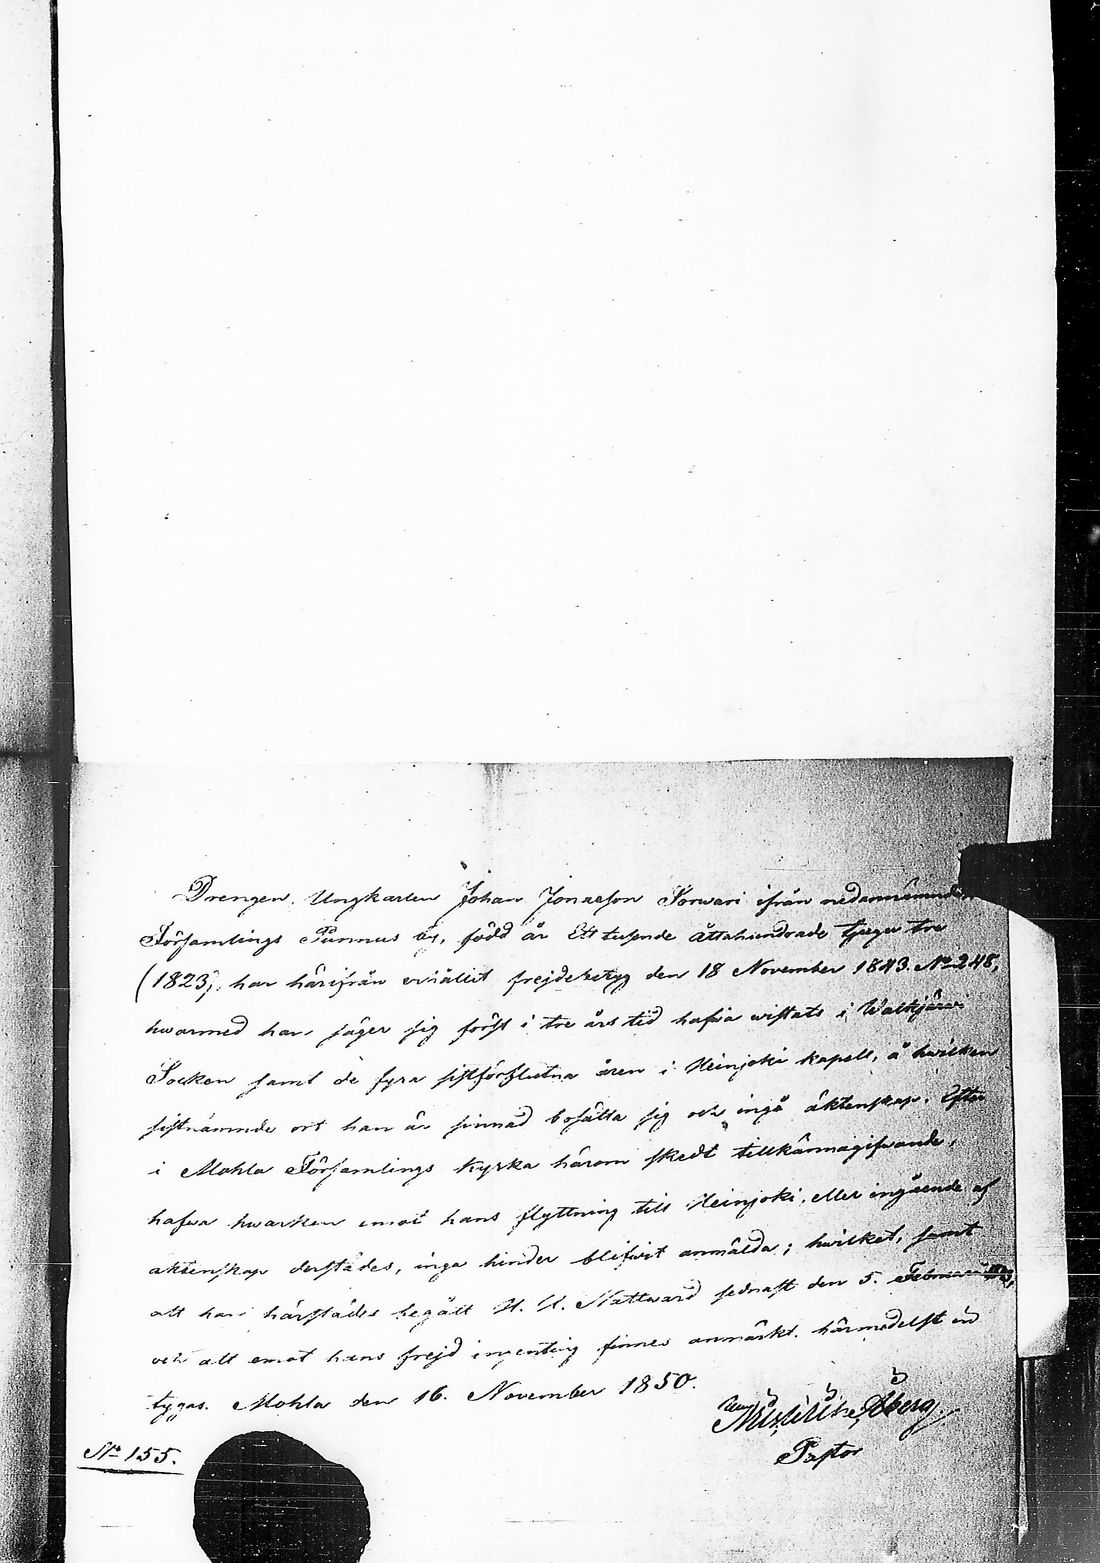 Drengen, Ungkarlen Johan Jonasson Sorwari ifrån nedannämnde
Församlings Punnus by, född år Ett tusende åttahundrade tjugu tre
(1823), har härifrån erhållit frejdebetyg den 18 November 1843 No 248,
hwarmed han säger sig först i tre års tid hafwa wistats i Walkjärwi
Socken samt de fyra sistförflutna åren i Heinjoki kapell, å hwilken
sistnämnde ort han är sinnad bosätta sig och ingå äktenskap. Efter
i Mohla Församlings kyrka härom skedt tillkännagifwande,
hafwa hwarken emot hans flyttning till Heinjoki, eller ingående af
äktenskap derstädes, inga hinder blifwit anmälda; hwilket, samt
att han härstädes begått H. H. Nattward sednast den 5. Februari
och att emot hans frejd ingenting finnes anmärkt, härmedelst be
tygas. Mohla den 16. November 1850.
Åberg
Pastor
No 155.